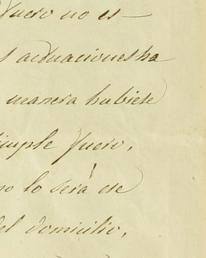 fuero no es
actuaciones ha
manera hubiese
simple fuero,
no lo será de
del domicilio,